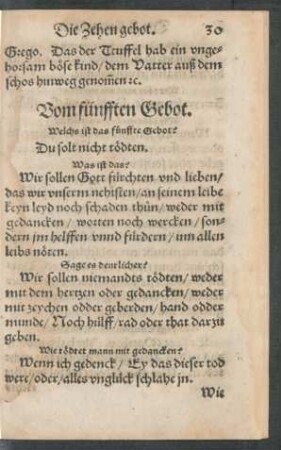 Die Zehen gebot. 30
Grego. Das der Teuffel hab ein vnge-
horsam böse kind/ dem Vatter auß dem
schos hinweg genom̃en ꝛc.
Vom fünfften Gebot.
Welchs ist das fünffte Gebot?
Du solt nicht tödten.
Was ist das?
Wir sollen Gott fürchten vnd lieben/
das wir vnserm nehisten/ an seinem leibe
keyn leyd noch schaden thün/ weder mit
gedancken / worten noch wercken / son-
dern jm helffen vnnd fürdern/ um allen
leibs nöten.
Sage es deutlicher?
Wir sollen niemandts tödten/ weder
mit dem hertzen oder gedancken/ weder
mit zeychen odder geberden/ hand odder
munde/ Noch hilff/ rad oder that dar zů
geben.
Wie tödtet mann mit gedancken?
Wenn ich gedenck / Ey das dieser tod
were/ oder/ alles vnglück schlahe jn.
Wie